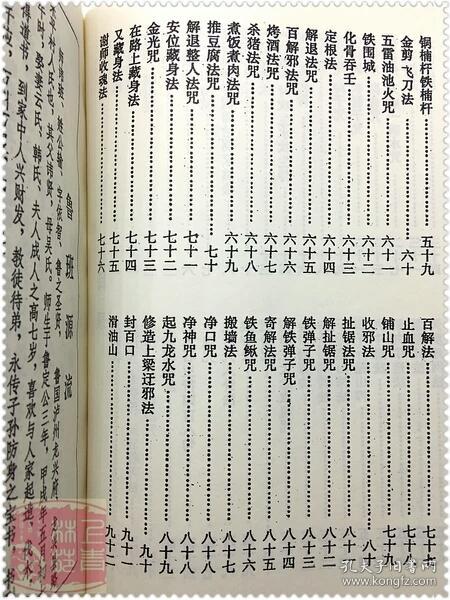 铜楠杆铁楠杆……五十九
金剪飞刀法……六十
五雷油池火咒……六十一
铁围城……六十二
化骨吞壬……六十三
定根法……六十四
解退法咒……六十五
百解邪法咒……六十六
烤酒法咒……六十七
杀猪法咒……六十八
煮饭煮肉法咒……六十九
推豆腐法咒
解退整人法咒……七十一
安位藏身法……七十二
金光咒……七十三
在路上藏身法……七十四
又藏身法……七十五
谢师收魂法……七十六
百解法
止血咒
铺山咒
收邪法……八十
扯锯法咒
解扯锯咒
铁弹子咒
解铁弹子咒……八十四
寄解法咒……八十五
铁鱼鳅咒……八十六
搬墙法……八十七
净口咒……八十八
净神咒
起九龙水咒……八十九
修造上梁迂邪法……九十
封百口……九十一
滑油山
鲁班源流
师讳班，姓公输，字依智，鲁之圣贤
村人氏也，其父讳贤，母吴氏。师生于鲁定公三年，甲戌年
娶妻云氏、韩氏，夫人成人之高七岁，喜欢与人家起造
得道书，到家中人兴财发，教徒待弟，永传子孙防身之
孔夫子旧书网
www.kongfz.com